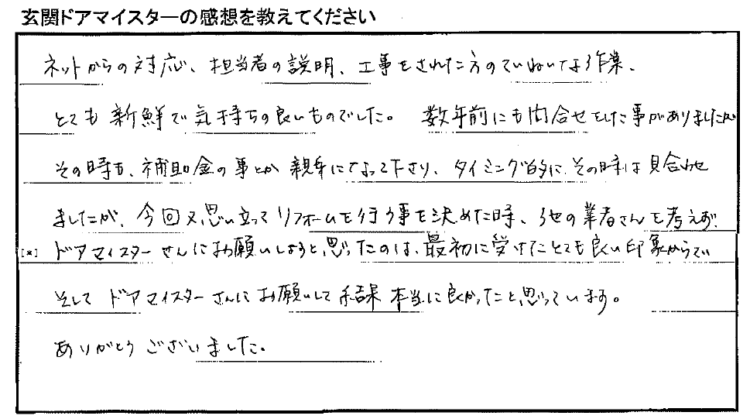 玄関ドアマイスターの感想を教えてください
ネットからの対応、担当者の説明、工事をされた方のていねいな作業、
とても新鮮で気持ちの良いものでした。 数年前にも問合せをした事がありましたが
その時も、補助金の事とか親身になって下さり、タイミング的にその時は見合わせ
ましたが、今回又思い立ってリフォームを行う事を決めた時、他の業者さんを考えず、
[*] ドアマイスターさんにお願いしようと思ったのは、最初に受けたとても良い印象からで
そして ドアマイスターさんにお願いして結果本当に良かったと思っています。
ありがとうございました。